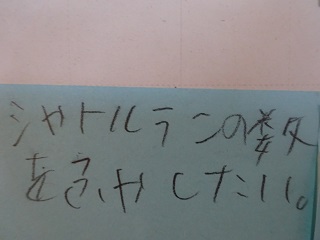 シャトルランの数
をふやしたい。